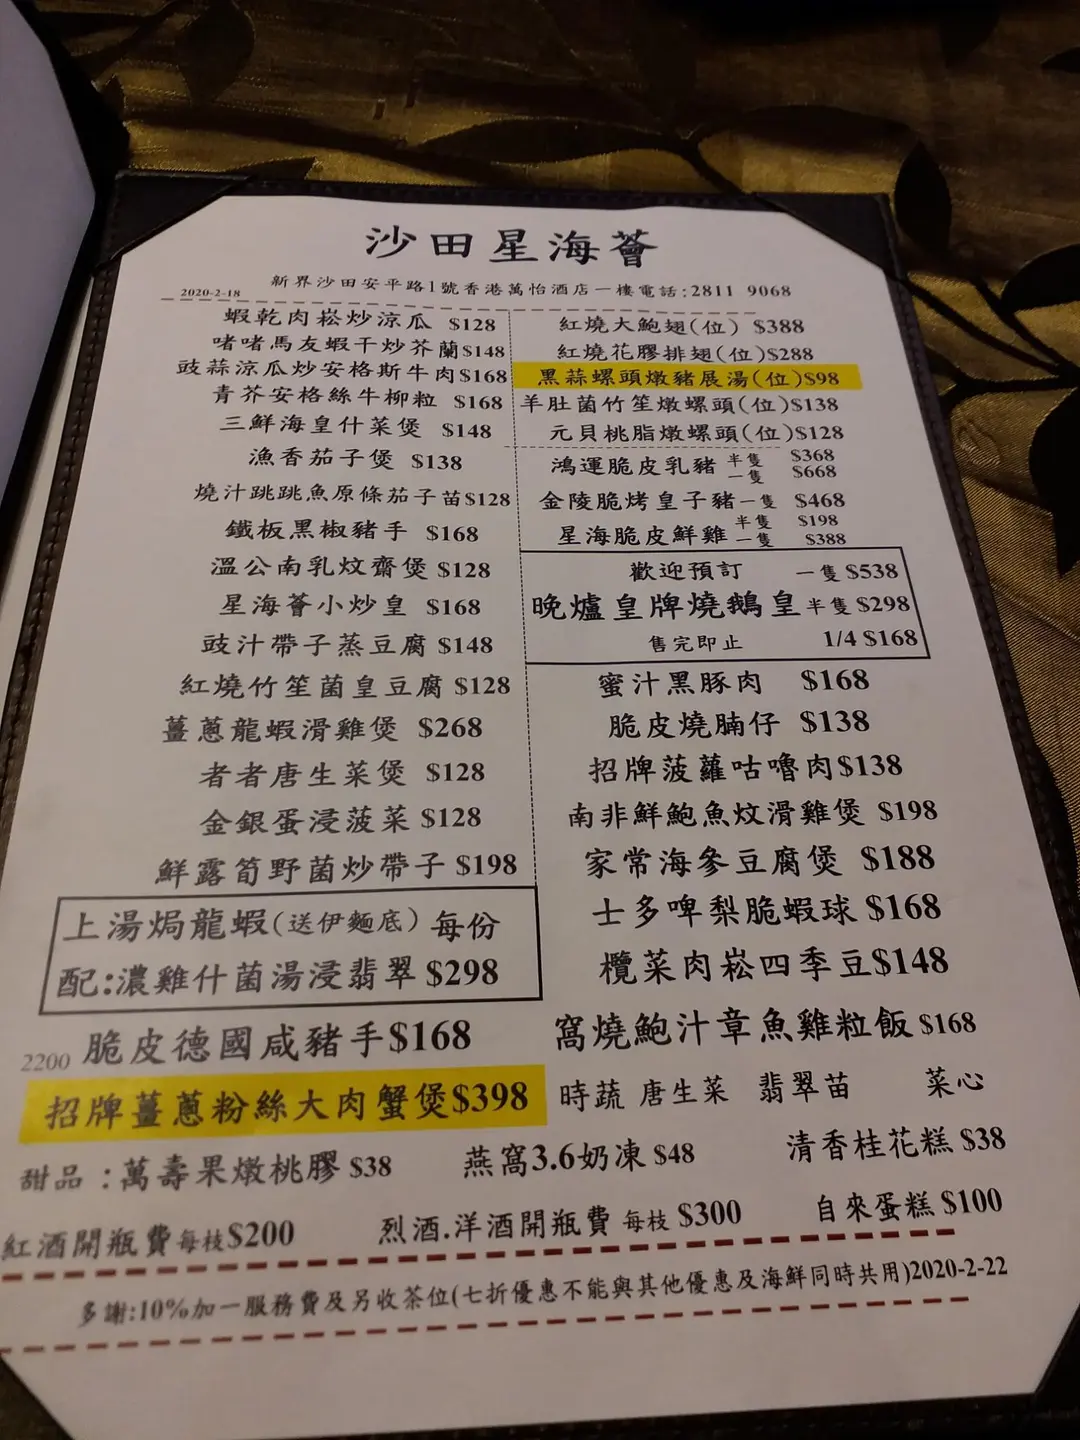 沙田星海薈
新界沙田安平路1號香港萬怡酒店一樓電話:2811 9068
2020-2-18
蝦乾肉崧炒涼瓜 $128
啫啫馬友蝦干炒芥蘭$148
豉蒜涼瓜炒安格斯牛肉$168
青芥安格絲牛柳粒 $168
三鮮海皇什菜煲 $148
漁香茄子煲 $138
燒汁跳跳魚原條茄子苗$128
鐵板黑椒豬手 $168
溫公南乳炆齋煲 $128
星海薈小炒皇 $168
豉汁帶子蒸豆腐 $148
紅燒竹笙菌皇豆腐 $128
薑蔥龍蝦滑雞煲 $268
者者唐生菜煲 $128
金銀蛋浸菠菜 $128
鮮露筍野菌炒帶子 $198
上湯焗龍蝦(送伊麵底) 每份
配:濃雞什菌湯浸翡翠 $298
2200 脆皮德國咸豬手$168
招牌薑蔥粉絲大肉蟹煲$398
紅燒大鮑翅(位) $388
紅燒花膠排翅(位)$288
黑蒜螺頭燉豬展湯(位)$98
羊肚菌竹笙燉螺頭(位)$138
元貝桃脂燉螺頭(位)$128
鴻運脆皮乳豬 半隻 $368
一隻 $668
金陵脆烤皇子豬一隻 $468
星海脆皮鮮雞 半隻 $198
一隻 $388
歡迎預訂 一隻 $538
晚爐皇牌燒鵝皇 半隻 $298
售完即止 1/4 $168
蜜汁黑豚肉 $168
脆皮燒腩仔 $138
招牌菠蘿咕嚕肉$138
南非鮮鮑魚炆滑雞煲 $198
家常海參豆腐煲 $188
士多啤梨脆蝦球 $168
欖菜肉崧四季豆$148
窩燒鮑汁章魚雞粒飯 $168
時蔬 唐生菜 翡翠苗 菜心
甜品 :萬壽果燉桃膠 $38 燕窩3.6奶凍 $48 清香桂花糕 $38
紅酒開瓶費每枝$200 烈酒.洋酒開瓶費 每枝 $300 自來蛋糕 $100
多謝:10%加一服務費及另收茶位(七折優惠不能與其他優惠及海鮮同時共用)2020-2-22